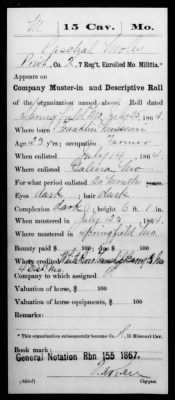 M | 15 Cav. | Mo.
Pvt., Co. 2, 7 Reg't, Enrolled Mo. Militia.*
Appears on
Company Muster-in and Descriptive Roll
of the organization named above. Roll dated
Springfield Mo. July 23, 1864.
Where born Franklin Missouri
Age 23 y'rs; occupation Farmer
When enlisted July 14, 1864.
Where enlisted Galena Mo
For what period enlisted 20 Months years.
Eyes dark; hair dark
Complexion dark; height 6 ft. 1 in.
When mustered in July 23, 1864.
Where mustered in Springfield Mo.
Bounty paid $ 100; due $ 100
Where credited
4 Dist Mo.
Company to which assigned
Valuation of horse, $ 100
Valuation of horse equipments, $ 100
Remarks:
* This organization subsequently became Co. 15 Missouri Cav.
Book mark:
General Notation Rbn 155 1867.
Copyist.